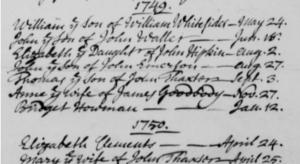 1749.
William ye Son of William Whitesides — May 24.
John ye Son of John Waller — Jun. 18.
Elizabeth ye Daught. of John Hipkin — Aug. 2.
John ye Son of John Emerson — Aug 27.
Thomas ye Son of John Thaxter — Sept. 3.
Anne ye Wife of James Goodbody — Nov. 27.
Bridget Howman — Jan. 12.
1750.
Elizabeth Clements — April 24.
Mary ye Wife of John Thaxter — April 25.